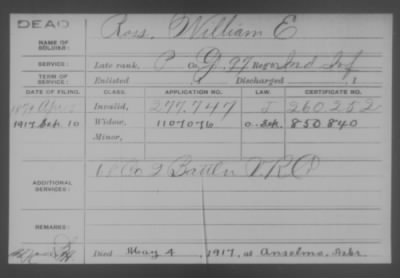 DEAD
Ross, William E
NAME OF
SOLDIER:
SERVICE:
Late rank, P Co. G, 97 Reg't Ind Inf
TERM OF
SERVICE:
Enlisted , 1 Discharged , 1
DATE OF FILING. CLASS. APPLICATION NO. LAW. CERTIFICATE NO.
Invalid, 277,747 J 260,252
1917 Sep. 10 Widow, 1107076 O. Sep. 850840
Minor,
ADDITIONAL
SERVICES:
2 Battln V.R.C.
REMARKS:
Died May 4, 1917, at Anselmo, Nebr.